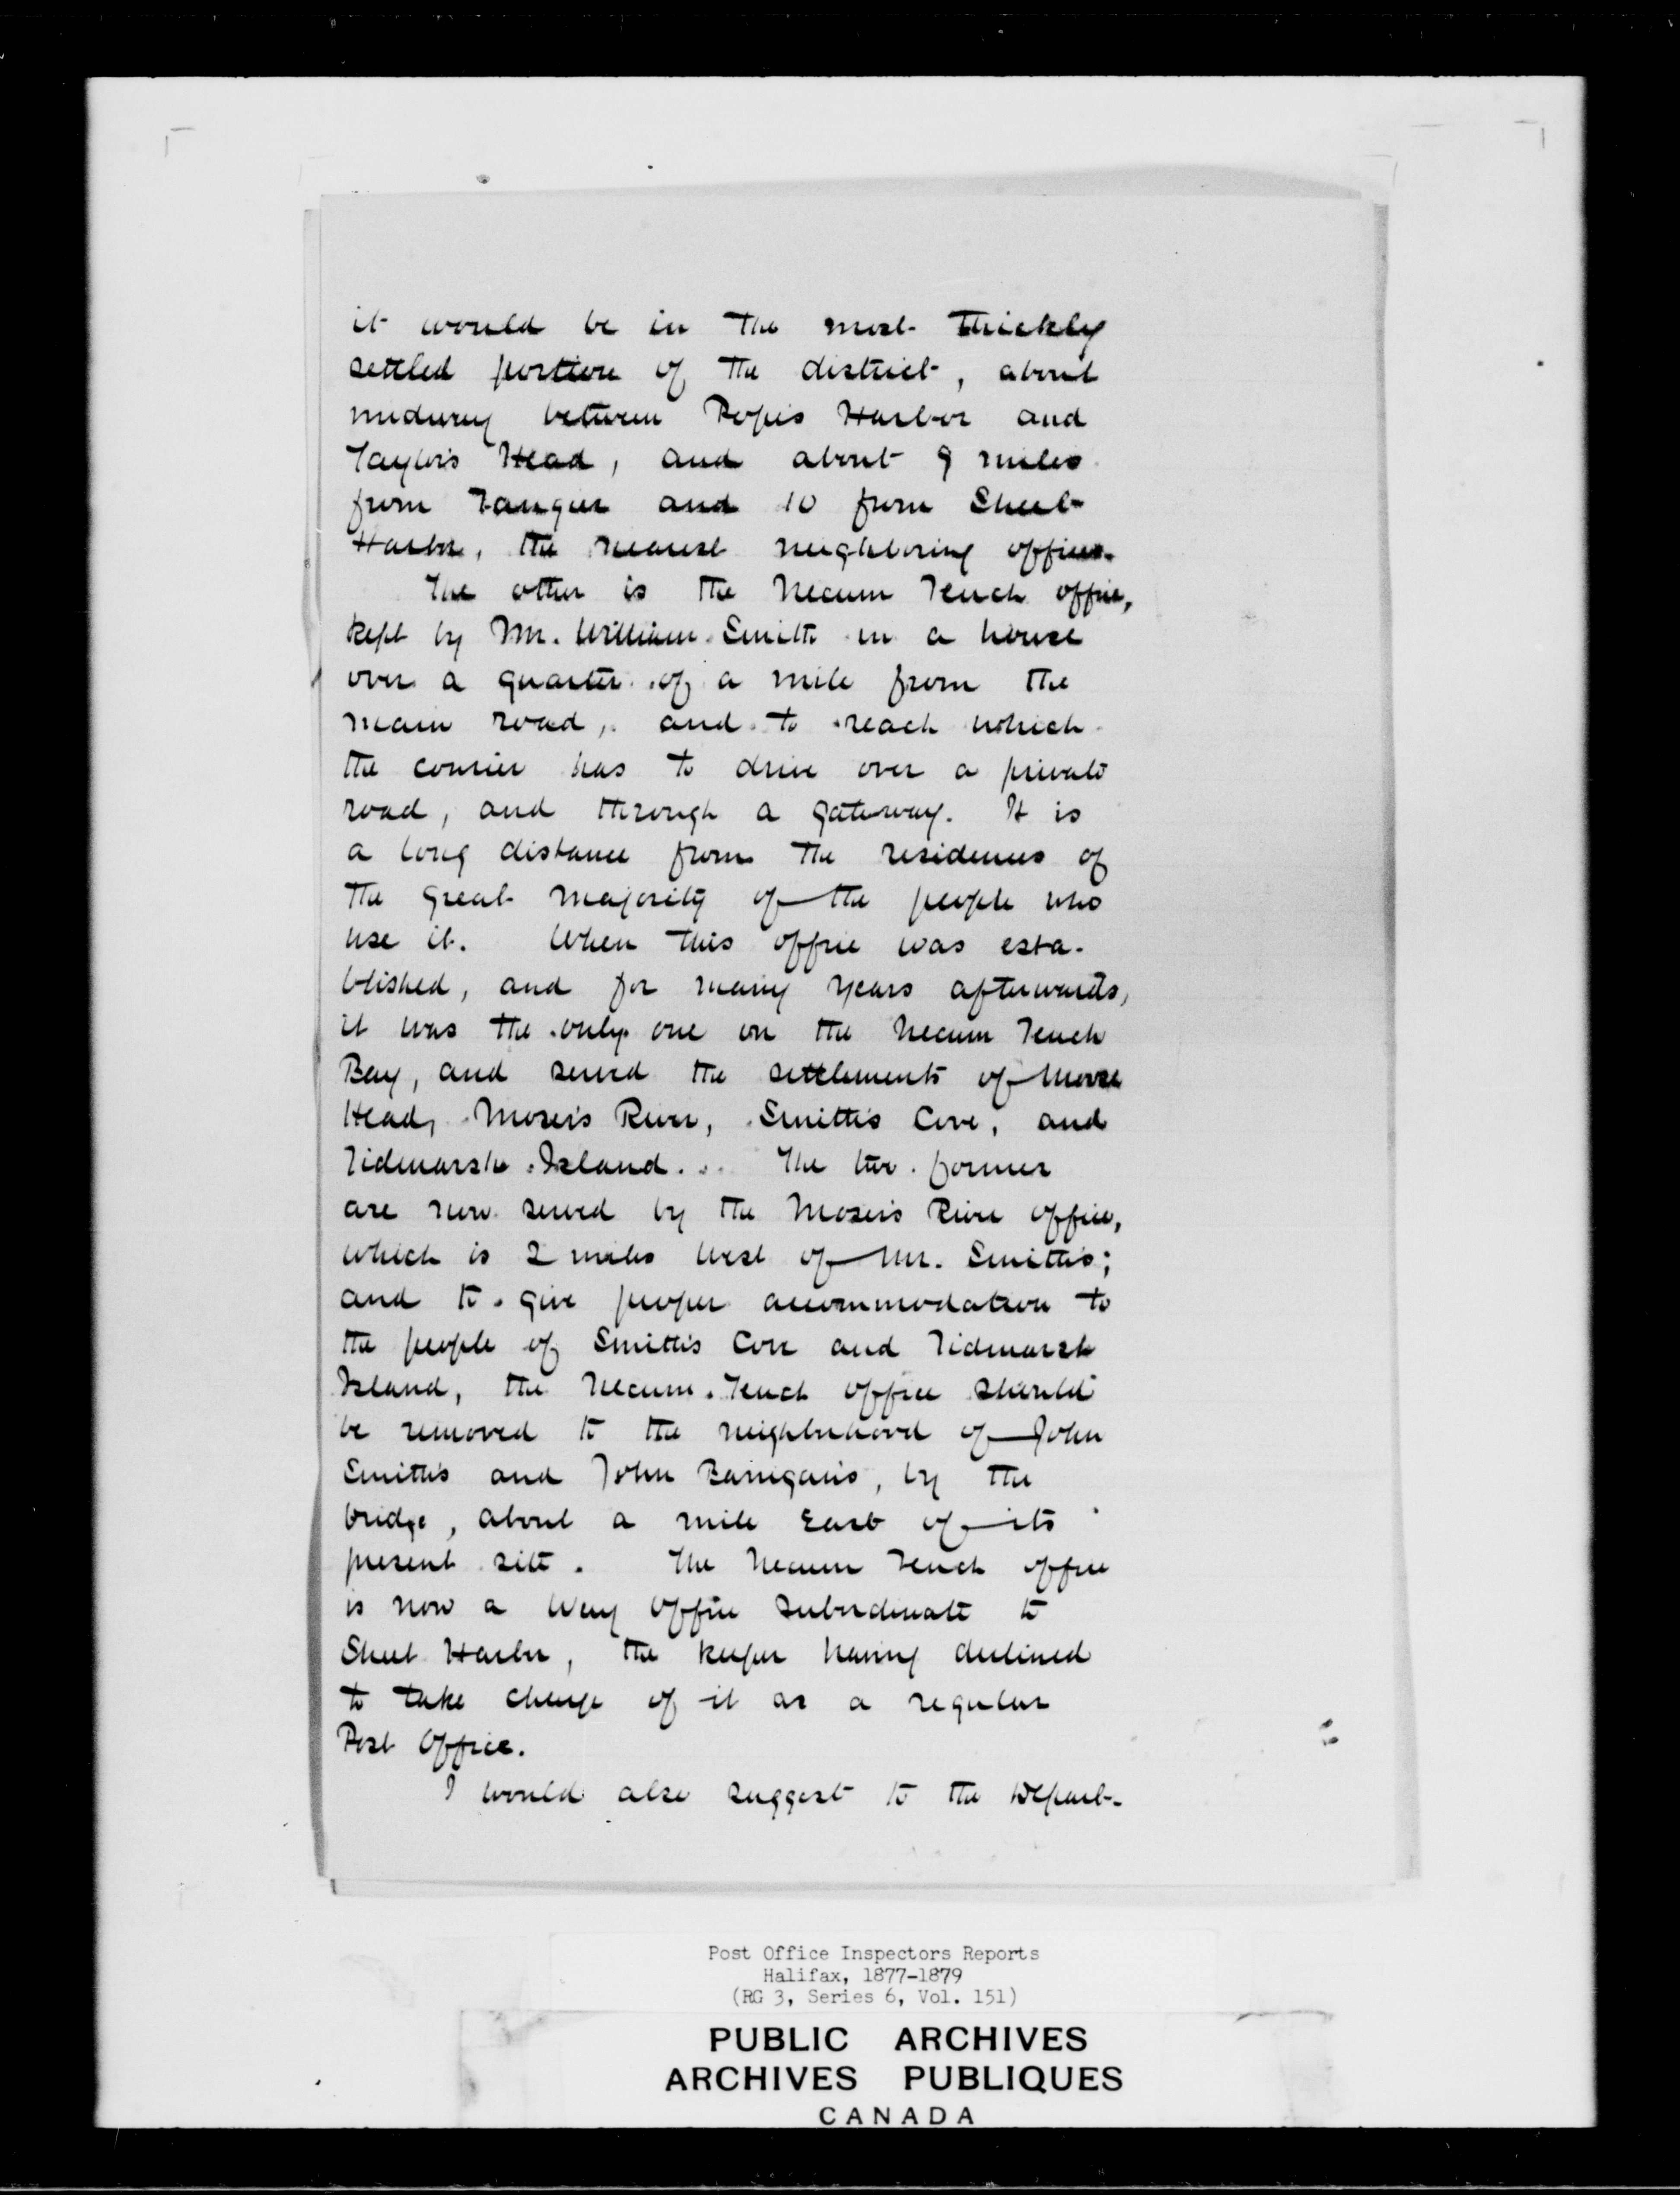 it would be in the most thickly
settled portion of the district, about
midway between Pope's Harbor and
Taylor's Head, and about 9 miles
from Tangier and 10 from Sheet
Harbor, the nearest neighboring offices.
The other is the Necum Teuch office,
kept by Mr. William Smith in a house
over a quarter of a mile from the
main road, and to reach which
the courier has to drive over a private
road, and through a gateway. It is
a long distance from the residences of
the great majority of the people who
use it. When this office was esta-
blished, and for many years afterwards,
it was the only one on the Necum Teuch
Bay, and served the settlements of Moose
Head, Moser's River, Smith's Cove, and
Tidmarsh Island. The two former
are now served by the Moser's River office,
which is 2 miles West of Mr. Smith's;
and to give proper accommodation to
the people of Smith's Cove and Tidmarsh
Island, the Necum Teuch office should
be removed to the neighborhood of John
Smith's and John , by the
bridge, about a mile East of its
present site. The Necum Teuch office
is now a Way Office subordinate to
Sheet Harbor, the keeper having declined
to take charge of it as a regular
Post Office.
I would also suggest to the Depart-
Post Office Inspectors Reports
Halifax, 1877-1879
(RG 3, Series 6, Vol. 151)
PUBLIC ARCHIVES
ARCHIVES PUBLIQUES
CANADA